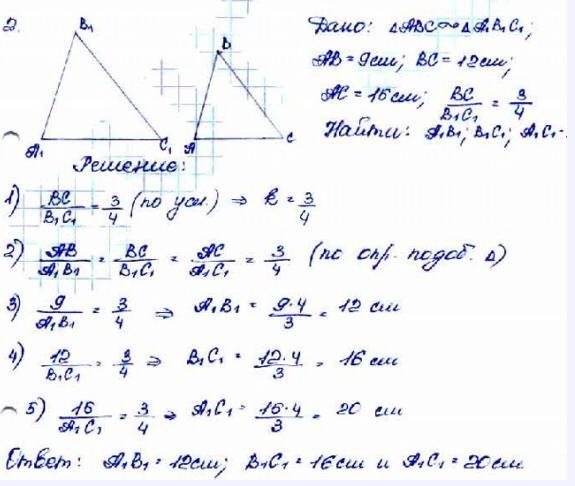 2.
B₁
A₁
C₁
B
A
C
Дано: △ABC ∾ △A₁B₁C₁;
AB = 9 см; BC = 12 см;
AC = 16 см; BC/B₁C₁ = 3/4
Найти: A₁B₁; B₁C₁; A₁C₁-
Решение:
1) BC/B₁C₁ = 3/4 (по усл.) ⇒ k = 3/4
2) AB/A₁B₁ = BC/B₁C₁ = AC/A₁C₁ = 3/4 (по опр. подоб. △)
3) 9/A₁B₁ = 3/4 ⇒ A₁B₁ = 9·4/3 = 12 см
4) 12/B₁C₁ = 3/4 ⇒ B₁C₁ = 12·4/3 = 16 см
5) 16/A₁C₁ = 3/4 ⇒ A₁C₁ = 16·4/3 = 20 см
Ответ: A₁B₁ = 12 см; B₁C₁ = 16 см и A₁C₁ = 20 см